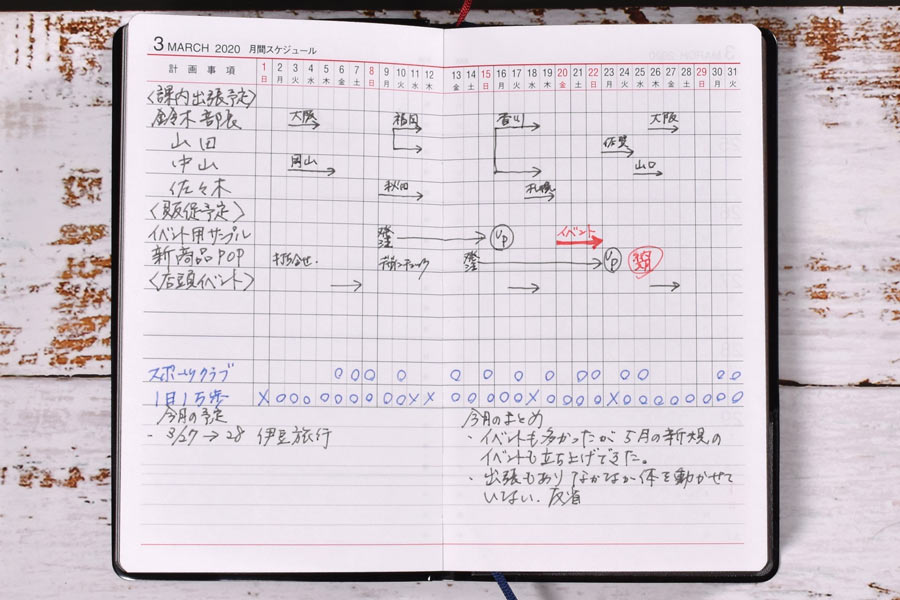 3 MARCH 2020 月間スケジュール
計画事項 1 2 3 4 5 6 7 8 9 10 11 12 13 14 15 16 17 18 19 20 21 22 23 24 25 26 27 28 29 30 31
日 月 火 水 木 金 土 日 月 火 水 木 金 土 日 月 火 水 木 金 土 日 月 火 水 木 金 土 日 月 火
〈課内出張予定〉
鈴木部長 大阪 福岡 香川 大阪
山田 佐賀
中山 岡山 山口
佐々木 秋田 札幌
〈販促予定〉
イベント用サンプル 発注 UP イベント
新商品POP 打ち合せ. 発注 UP
〈店頭イベント〉
スポーツクラブ ○ ○ ○ ○ ○ ○ ○ ○ ○ ○ ○ ○ ○ ○
1日1万歩 X ○ ○ ○ ○ ○ ○ ○ ○ ○ X X ○ ○ ○ ○ ○ X ○ ○ ○ ○ X ○ ○ ○ ○ ○ ○ ○ ○
今月の予定
・3/27→28 伊豆旅行
今月のまとめ
・イベントも多かったが5月の新規の
イベントも立ち上げできた。
・出張もありなかなか体を動かせて
いない.反省